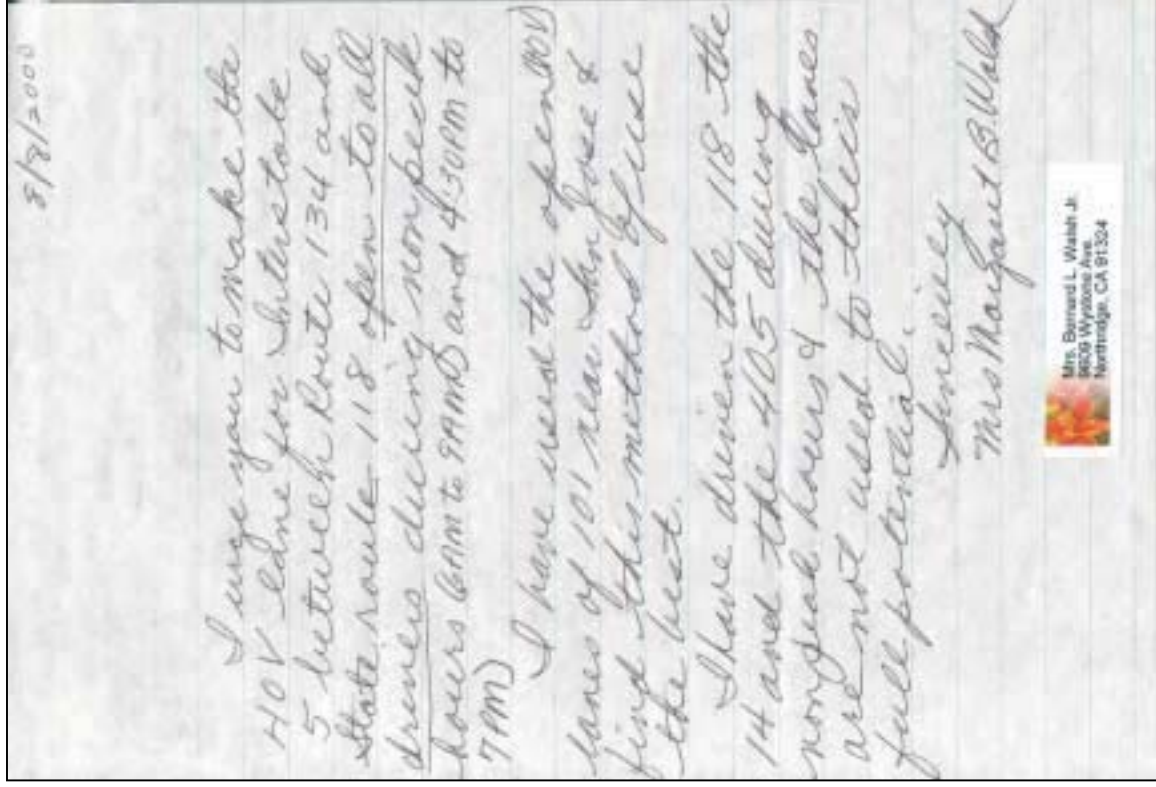 8/8/2000
I urge you to make the
HOV lane for Interstate
5 between Route 134 and
State route 118 open to all
drivers during nonpeak
hours 6AM to 9AM) and 430PM to
7PM)
I have used the open HOV)
lanes of 101 near San Jose &
find this method of use
the best.
I have driven the 118 the
14 and the 405 during
nonpeak hours & the lanes
are not used to their
full potential.
Sincerely
Mrs Margaret B Walsh
Mrs. Bernard L. Walsh Jr.
9609 Wystone Ave.
Northridge, CA 91324